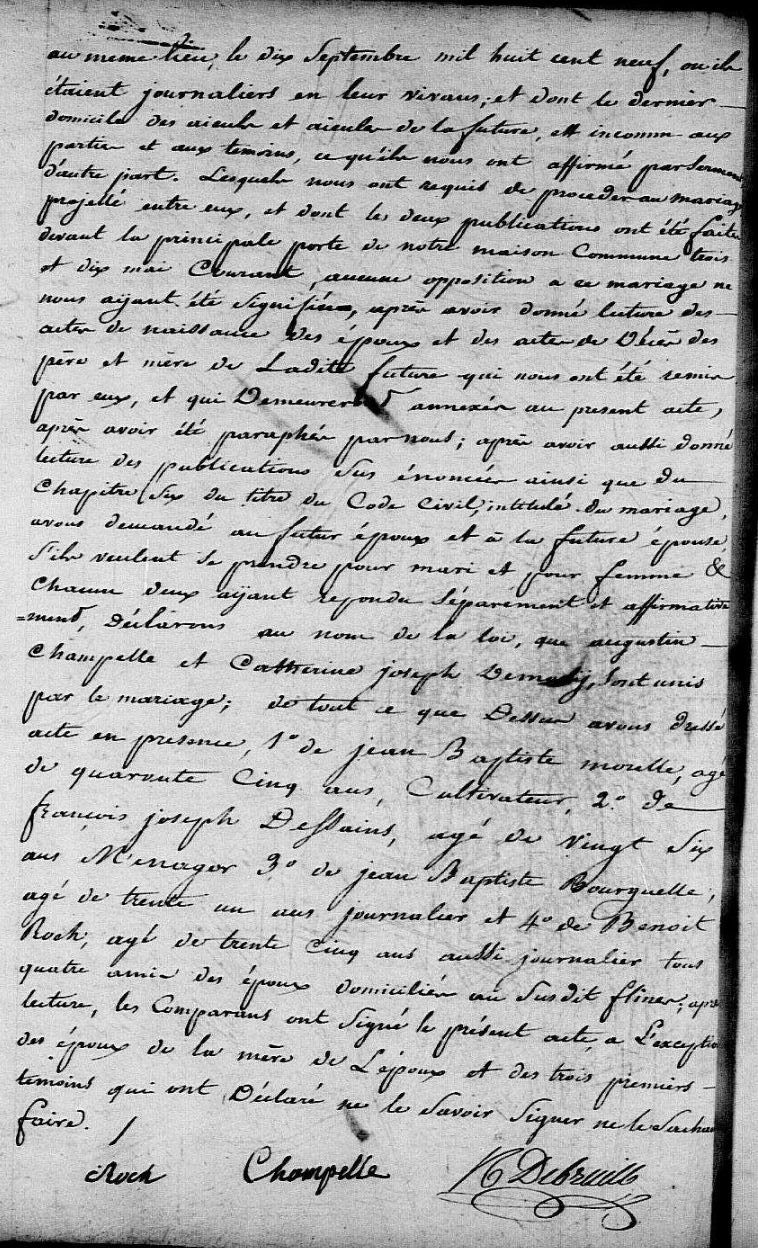 au meme lieu, le dix Septembre mil huit cent neuf, ou ils
étaient journaliers en leur vivans; et dont le dernier
domicile des aieuls et aieules de la future, est inconnu aux
parties et aux temoins, ce qu'ils nous ont affirmé par Serment
d'autre part. Lesquels nous ont requis de proceder au mariage
projetté entre eux, et dont les deux publications ont été faites
devant la principale porte de notre maison Commune trois
et dix mai Courant, aucune opposition a ce mariage ne
nous ayant été Signifiée, après avoir donné lecture des
actes de naissance des époux et des actes de Décès des
père et mère de Ladite future qui nous ont été remis
par eux, et qui Demeureront annexés au present acte,
après avoir été paraphés par nous; après avoir aussi donné
lecture des publications Sus énoncées ainsi que du
Chapitre Six du titre du Code Civil, intitulé du mariage,
avons demandé au futur époux et à la future épouse,
S'ils veulent Se prendre pour mari et pour femme &
Chacun deux ayant repondu Séparement et affirmative
=ment, Déclarons au nom de la loi, que augustin
Champelle et Catherine joseph Demory, Sont unis
par le mariage; de tout ce que Dessus avons dressé
acte en presence, 1° de jean Baptiste morelle, agé
de quarante Cinq ans, Cultivateur, 2.° de
françois joseph Dessains, agé de vingt Six
ans Menager 3.° de jean Baptiste Bourguelle,
agé de trente un ans journalier et 4° de Benoit
Roch, agé de trente Cinq ans aussi journalier tous
quatre amis des époux domiciliés au Susdit flines; après
lecture, les Comparans ont Signé le présent acte, a L'exception
des époux de la mère de L'époux et des trois premiers
temoins qui ont Déclaré ne le Savoir Signer ne le Sachant
faire.
Roch Champelle Debruille